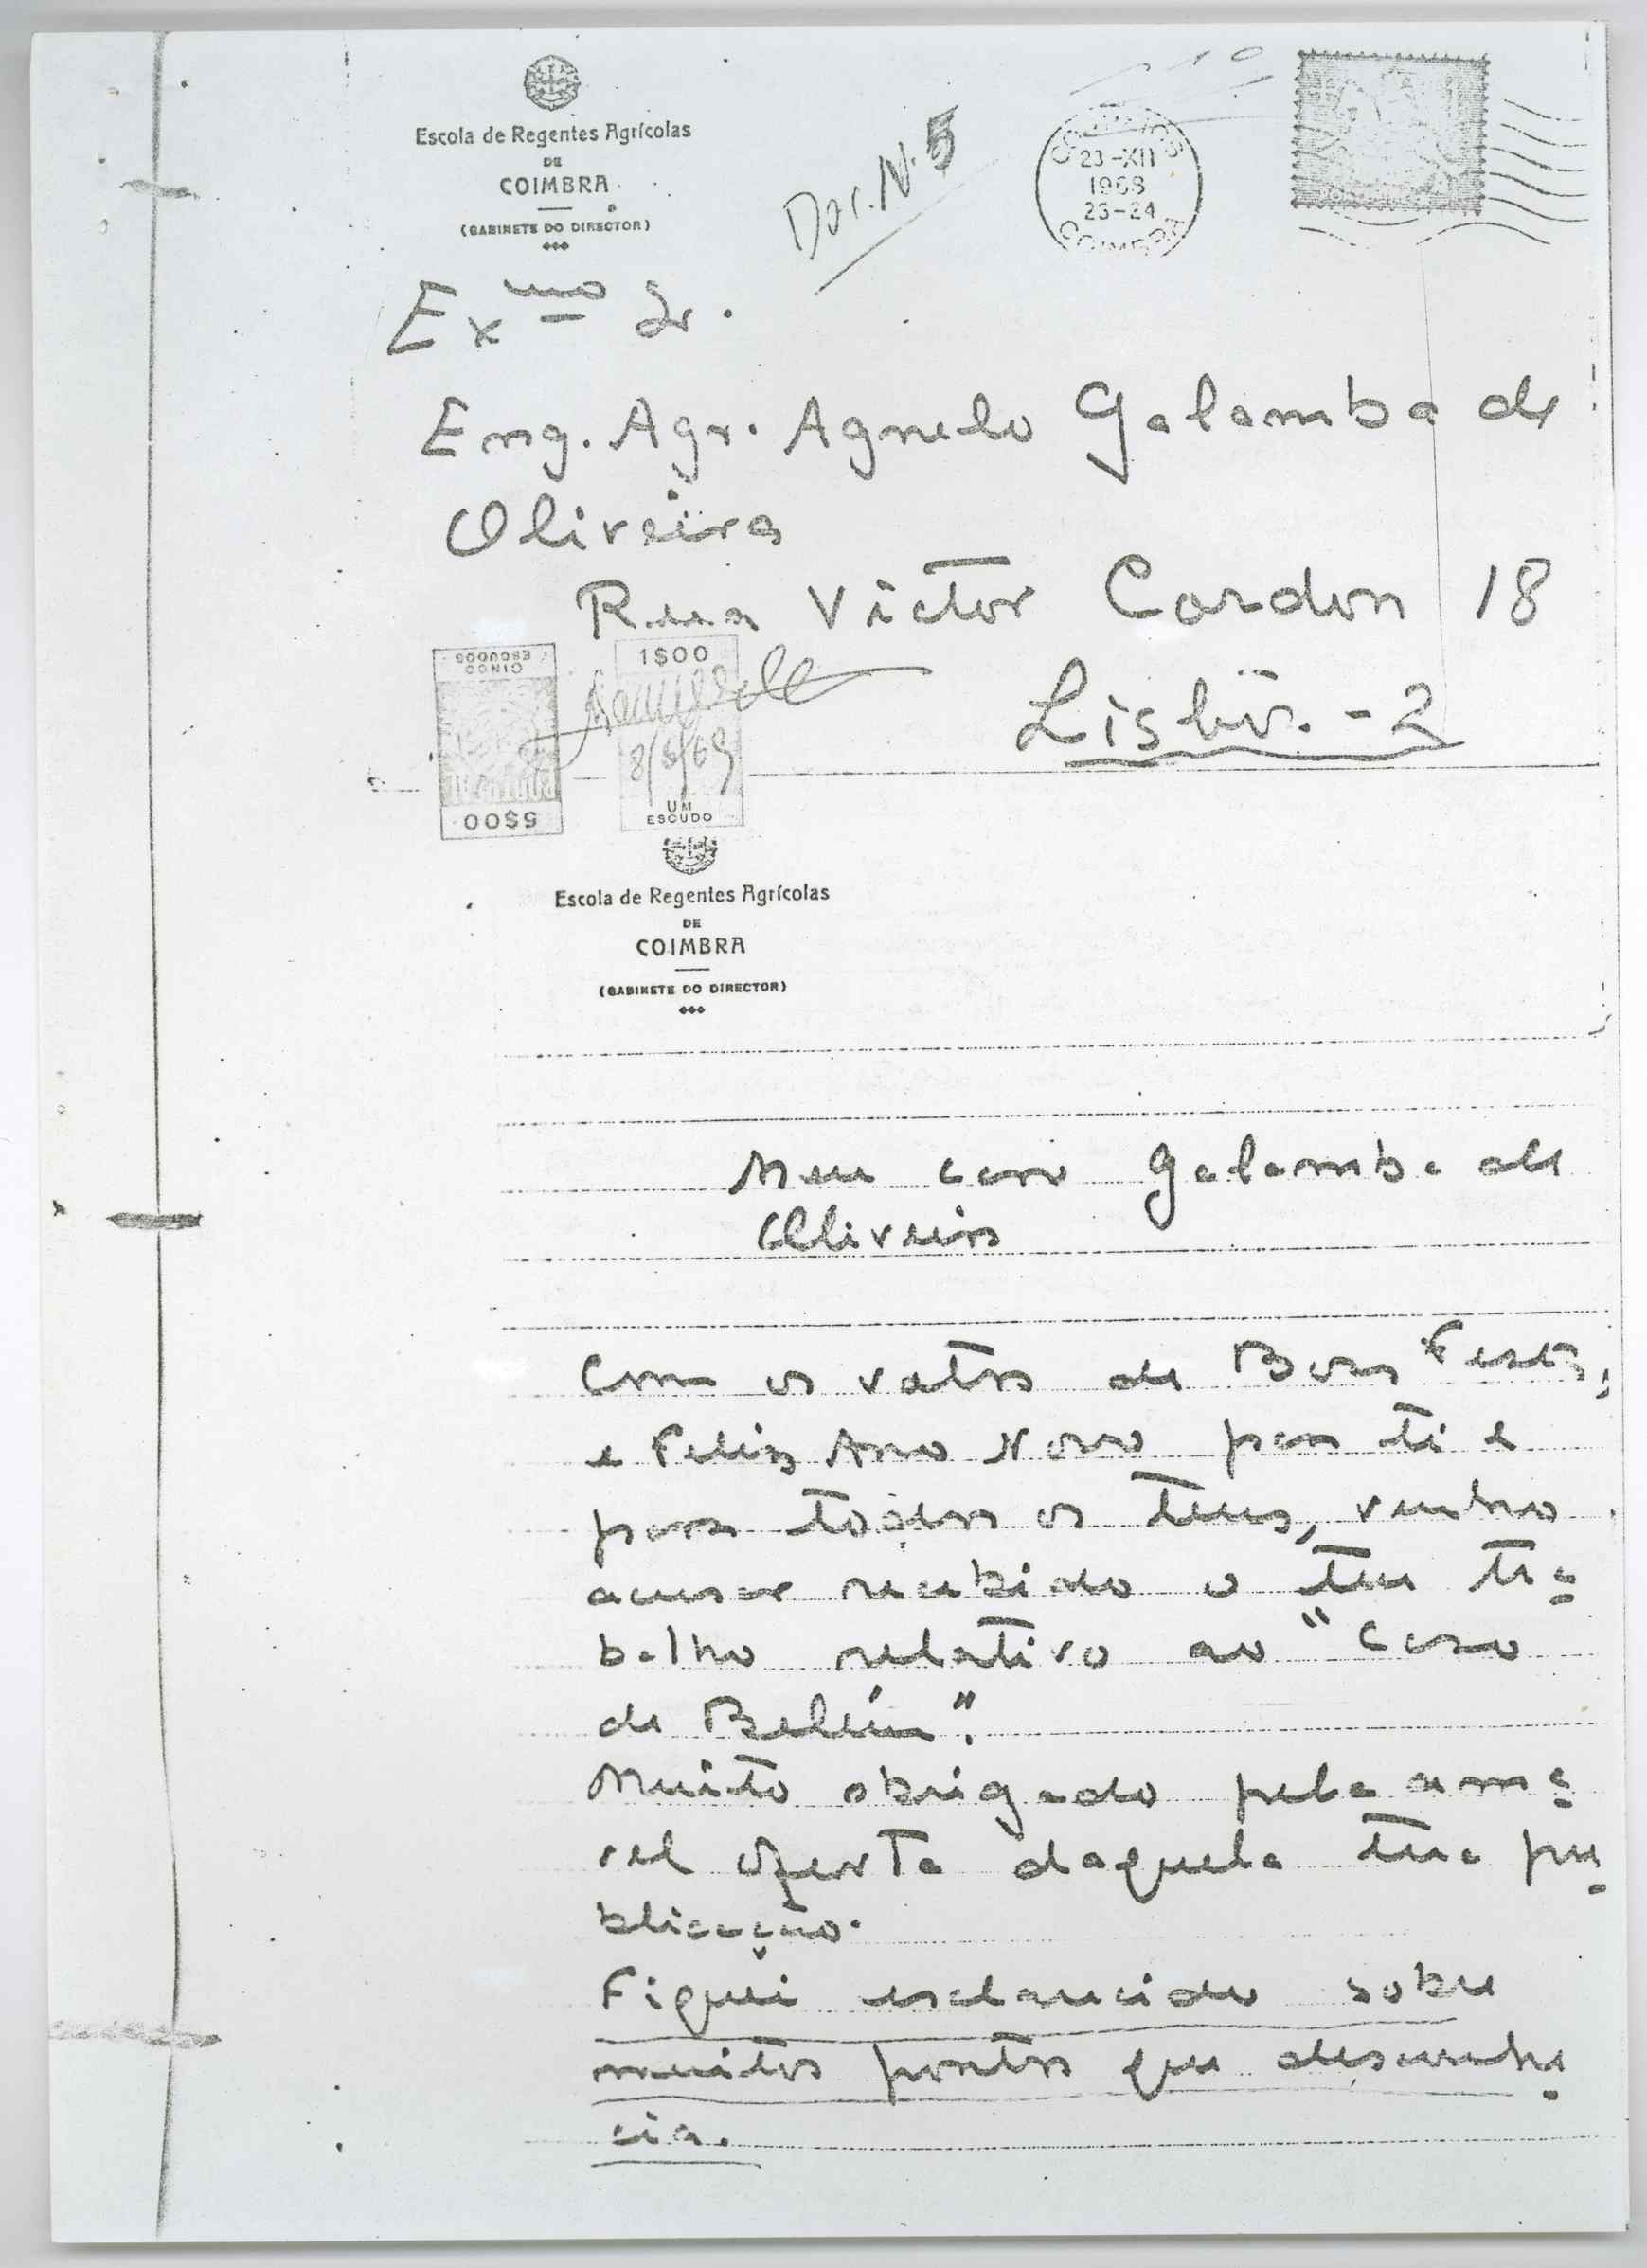 Escola de Regentes Agrícolas
DE
COIMBRA
(GABINETE DO DIRECTOR)
Doc. N. 5
CORREIOS
23-XII
1968
23-24
COIMBRA
Exmo Sr.
Eng. Agr. Agnelo Galamba de
Oliveira
Rua Victor Cordon 18
Lisboa - 2
CINCO
ESCUDOS
5$00
1$00
8/5/69
UM
ESCUDO
Escola de Regentes Agrícolas
DE
COIMBRA
(GABINETE DO DIRECTOR)
Meu caro Galamba de
Oliveira
Com os votos de Boas Festas,
e Feliz Ano Novo para ti e
para todos os teus, venho
acusar recebido o teu tra
balho relativo ao "Caso
de Belém".
Muito obrigado pela amá
vel oferta daquela tua pu
blicação.
Fiquei esclarecido sobre
muitos pontos que desconhe
cia.